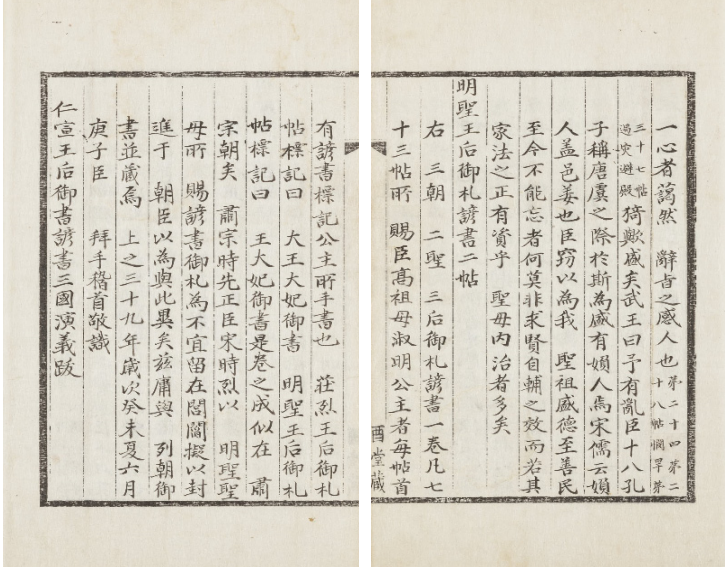 一心者藹然 辭旨之感人也 第二十四第二
十八帖憫旱第
三十七帖
過灾避殿 猗歟盛矣武王曰予有亂臣十人孔
子稱唐虞之際於斯為盛有婦人焉宋儒云婦
人盖邑姜也臣窃以為我 聖祖盛德至善民
至今不能忘者何莫非求賢自輔之效而若其
家法之正有資乎 聖母內治者多矣
明聖王后御札諺書二帖
右 三朝 二聖 三后御札諺書一卷凡七
十三帖所 賜臣高祖母淑明公主者每帖首
酉堂藏
有諺書標記公主所手書也 莊烈王后御札
帖標記曰 大王大妃御書 明聖王后御札
帖標記曰 王大妃御書是卷之成似在 肅
宗朝矣 肅宗時先正臣宋時烈以 明聖聖
母所 賜諺書御札為不宜留在閭閻擬以封
進于 朝臣以為與此異矣玆庸與 列朝御
書並藏焉 上之三十九年歲次癸未夏六月
庚子臣 拜手稽首敬識
仁宣王后御書諺書三國演義跋